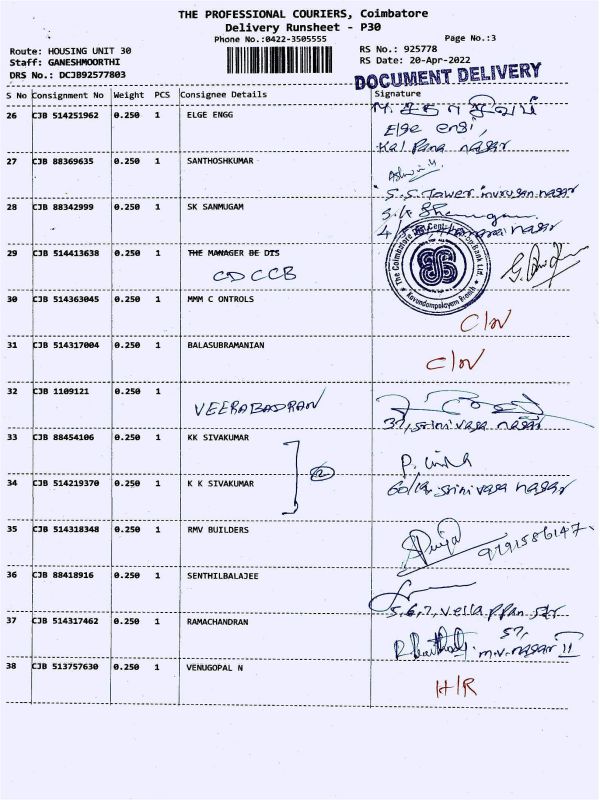 THE PROFESSIONAL COURIERS, Coimbatore
Delivery Runsheet - P30
Phone No.:0422-3505555
Page No.:3
Route: HOUSING UNIT 30
RS No.: 925778
Staff: GANESHMOORTHI
RS Date: 20-Apr-2022
DRS No.: DCJB92577803
DOCUMENT DELIVERY
S No Consignment No Weight PCS Consignee Details Signature
26 CJB 514251962 0.250 1 ELGE ENGG
Elge engi,
Kalpana nagar
27 CJB 88369635 0.250 1 SANTHOSHKUMAR
S.S. Tower murugan nagar
28 CJB 88342999 0.250 1 SK SANMUGAM
29 CJB 514413638 0.250 1 THE MANAGER BE DTS
CDCCB
30 CJB 514363045 0.250 1 MMM C ONTROLS
C/N
31 CJB 514317004 0.250 1 BALASUBRAMANIAN
C/N
32 CJB 1109121 0.250 1 VEERABADRAN
37, srinivasa nagar
33 CJB 88454106 0.250 1 KK SIVAKUMAR
34 CJB 514219370 0.250 1 K K SIVAKUMAR
srinivasa nagar
35 CJB 514318348 0.250 1 RMV BUILDERS
9791586147
36 CJB 88418916 0.250 1 SENTHILBALAJEE
5,6,7, vellappan
37 CJB 514317462 0.250 1 RAMACHANDRAN
57,
m.v. nagar II
38 CJB 513757630 0.250 1 VENUGOPAL N
H/R